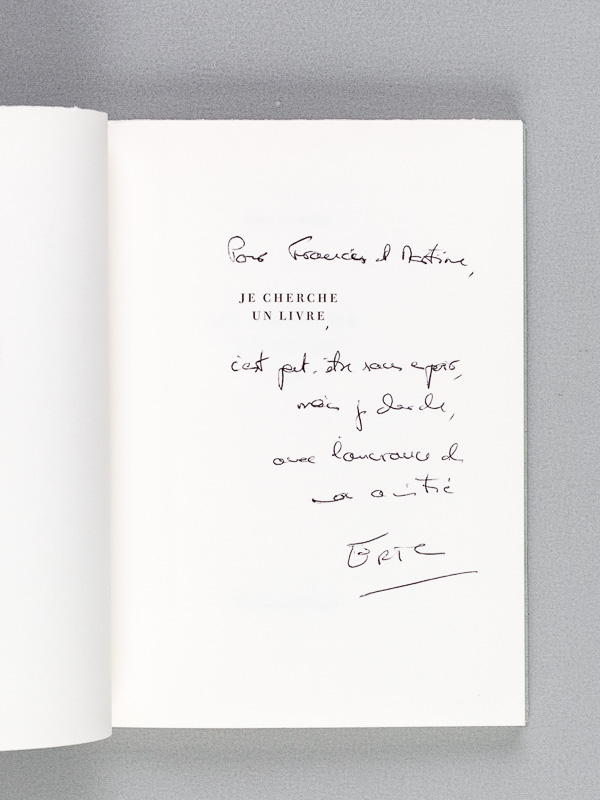 Pour Francis et Martine,
JE CHERCHE
UN LIVRE,
c'est peut-être sans espoir,
mais je cherche,
avec l'assurance de
mon amitié
ERIC